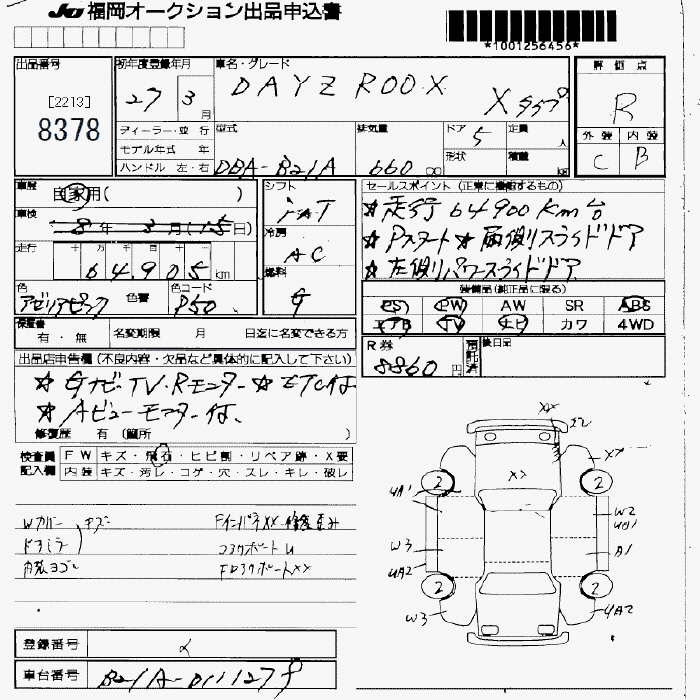 JU 福岡オークション出品申込書
*1001256456*
出品番号
[2213]
8378
初年度登録年月
27 3月
ディーラー・並 行
モデル年式 年
ハンドル 左・右
車名・グレード
DAYZ ROOX
X
型式
DBA-B21A
排気量
660 cc
ドア
5
形状
定員
人
積載
kg
評 価 点
R
外 装 内 装
C B
車歴
自家用( )
車検
8年 3月(15日)
走行
十 万 千 百 十
64,905 km
色
アゼリアピンク
色替
色コード
P50
シフト
FAT
冷房
AC
燃料
G
セールスポイント (正常に機能するもの)
☆走行64900Km台
☆Pスタート☆両側スライドドア
☆左側パワースライドドア
装備品(純正品に限る)
PS PW AW SR ABS
エアB TV ナビ カワ 4WD
保証書
有・無
名変期限 月 日迄に名変できる方
R券
8860円
預託済
後日品
出品店申告欄(不良内容・欠品など具体的に記入して下さい)
☆GナビTV・Rモニター☆ETC付
☆Aビューモニター付、
修復歴 有 (箇所 )
検査員記入欄
FW キズ・飛石・ヒビ割・リペア跡・X要
内装 キズ・汚レ・コゲ・穴・スレ・キレ・破レ
Wカバー
ドアミラ
キズ
内装ヨゴレ
FインパネXX 修復済み
コアサポートU
XX
X2
XX
X7
2
2
4A1
W3
4A2
W2
4U1
A1
2
2
W3
4A2
登録番号
車台番号
B21A-0111279